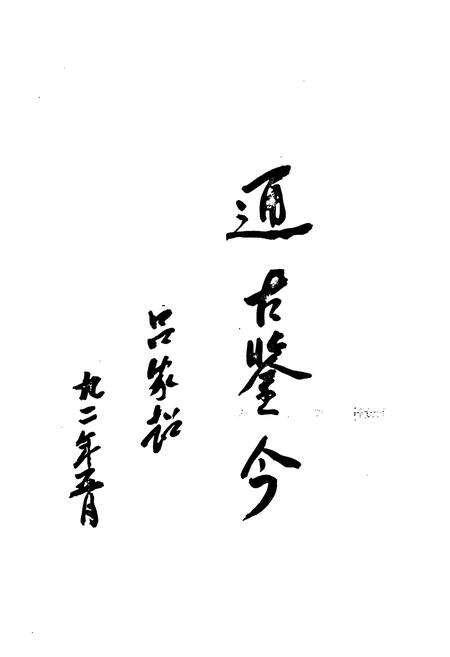 通古鉴今
吕家
九二年五月